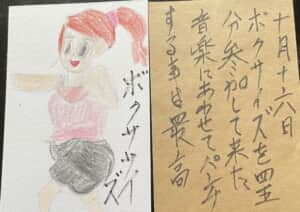 ボクササイ
ズ
十月十六日
ボクサイズを四五
分参加して来た
音楽にあわせてパンチ
する事は最高